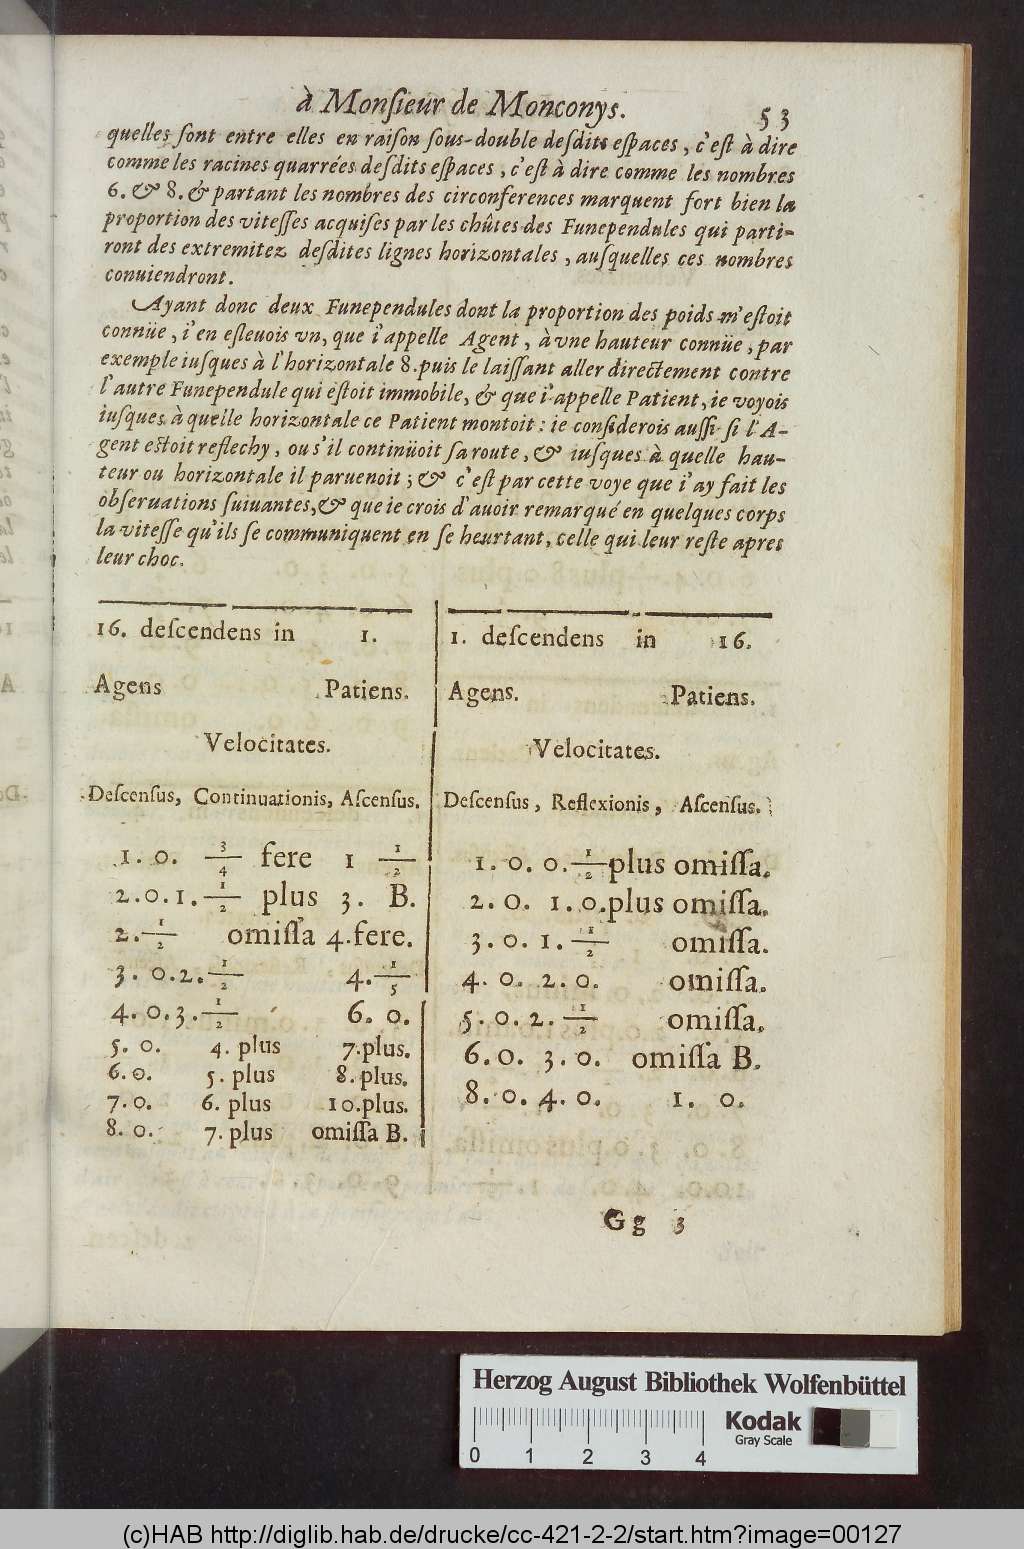 à Monſieur de Monconys. 53
quelles ſont entre elles en raiſon ſous-double deſdits eſpaces, c'eſt à dire
comme les racines quarrées deſdits eſpaces, c'eſt à dire comme les nombres
6. & 8. & partant les nombres des circonferences marquent fort bien la
proportion des viteſſes acquiſes par les chûtes des Funependules qui parti-
ront des extremitez deſdites lignes horizontales, auſquelles ces nombres
conuiendront.
Ayant donc deux Funependules dont la proportion des poids m'eſtoit
connüe, i'en eſleuois vn, que i'appelle Agent, à vne hauteur connüe, par
exemple iuſques à l'horizontale 8. puis le laiſſant aller directement contre
l'autre Funependule qui eſtoit immobile, & que i'appelle Patient, ie voyois
iuſques à quelle horizontale ce Patient montoit : ie conſiderois auſſi ſi l'A-
gent eſtoit reflechy, ou s'il continüoit ſa route, & iuſques à quelle hau-
teur ou horizontale il paruenoit ; & c'eſt par cette voye que i'ay fait les
obſeruations ſuiuantes, & que ie crois d'auoir remarqué en quelques corps
la viteſſe qu'ils ſe communiquent en ſe heurtant, celle qui leur reſte apres
leur choc.
16. deſcendens in 1.
Agens Patiens.
Velocitates.
Deſcenſus, Continuationis, Aſcenſus.
1. 0. 3/4 fere 1 1/2
2. 0. 1. 1/2 plus 3. B.
2. 1/2 omiſſa 4. fere.
3. 0. 2. 1/2 4. 1/5
4. 0. 3. 1/2 6. 0.
5. 0. 4. plus 7. plus.
6. 0. 5. plus 8. plus.
7. 0. 6. plus 10. plus.
8. 0. 7. plus omiſſa B.
1. deſcendens in 16.
Agens. Patiens.
Velocitates.
Deſcenſus, Reflexionis, Aſcenſus.
1. 0. 0. 1/2 plus omiſſa.
2. 0. 1. 0. plus omiſſa.
3. 0. 1. 1/2 omiſſa.
4. 0. 2. 0. omiſſa.
5. 0. 2. 1/2 omiſſa.
6. 0. 3. 0. omiſſa B.
8. 0. 4. 0. 1. 0.
Gg 3
Herzog August Bibliothek Wolfenbüttel
0 1 2 3 4
Kodak
Gray Scale
(c)HAB http://diglib.hab.de/drucke/cc-421-2-2/start.htm?image=00127